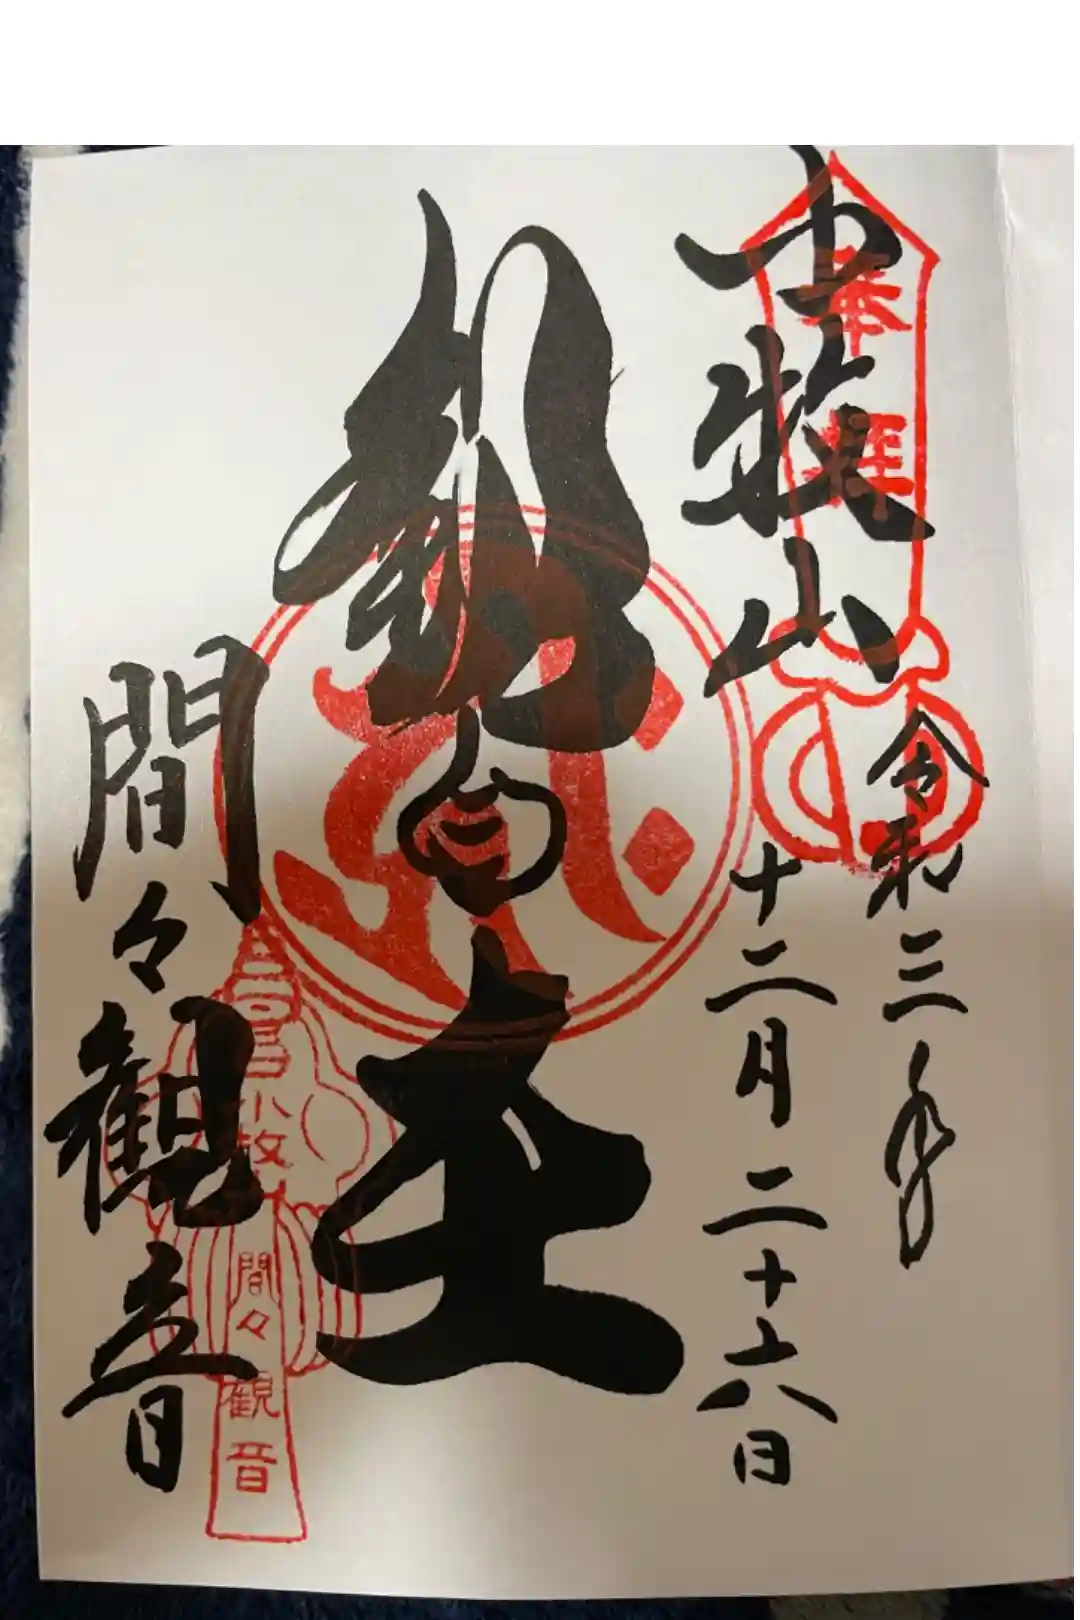 奉拝
小牧山
令和三年
十二月二十六日
間々観音
小牧
間々観音